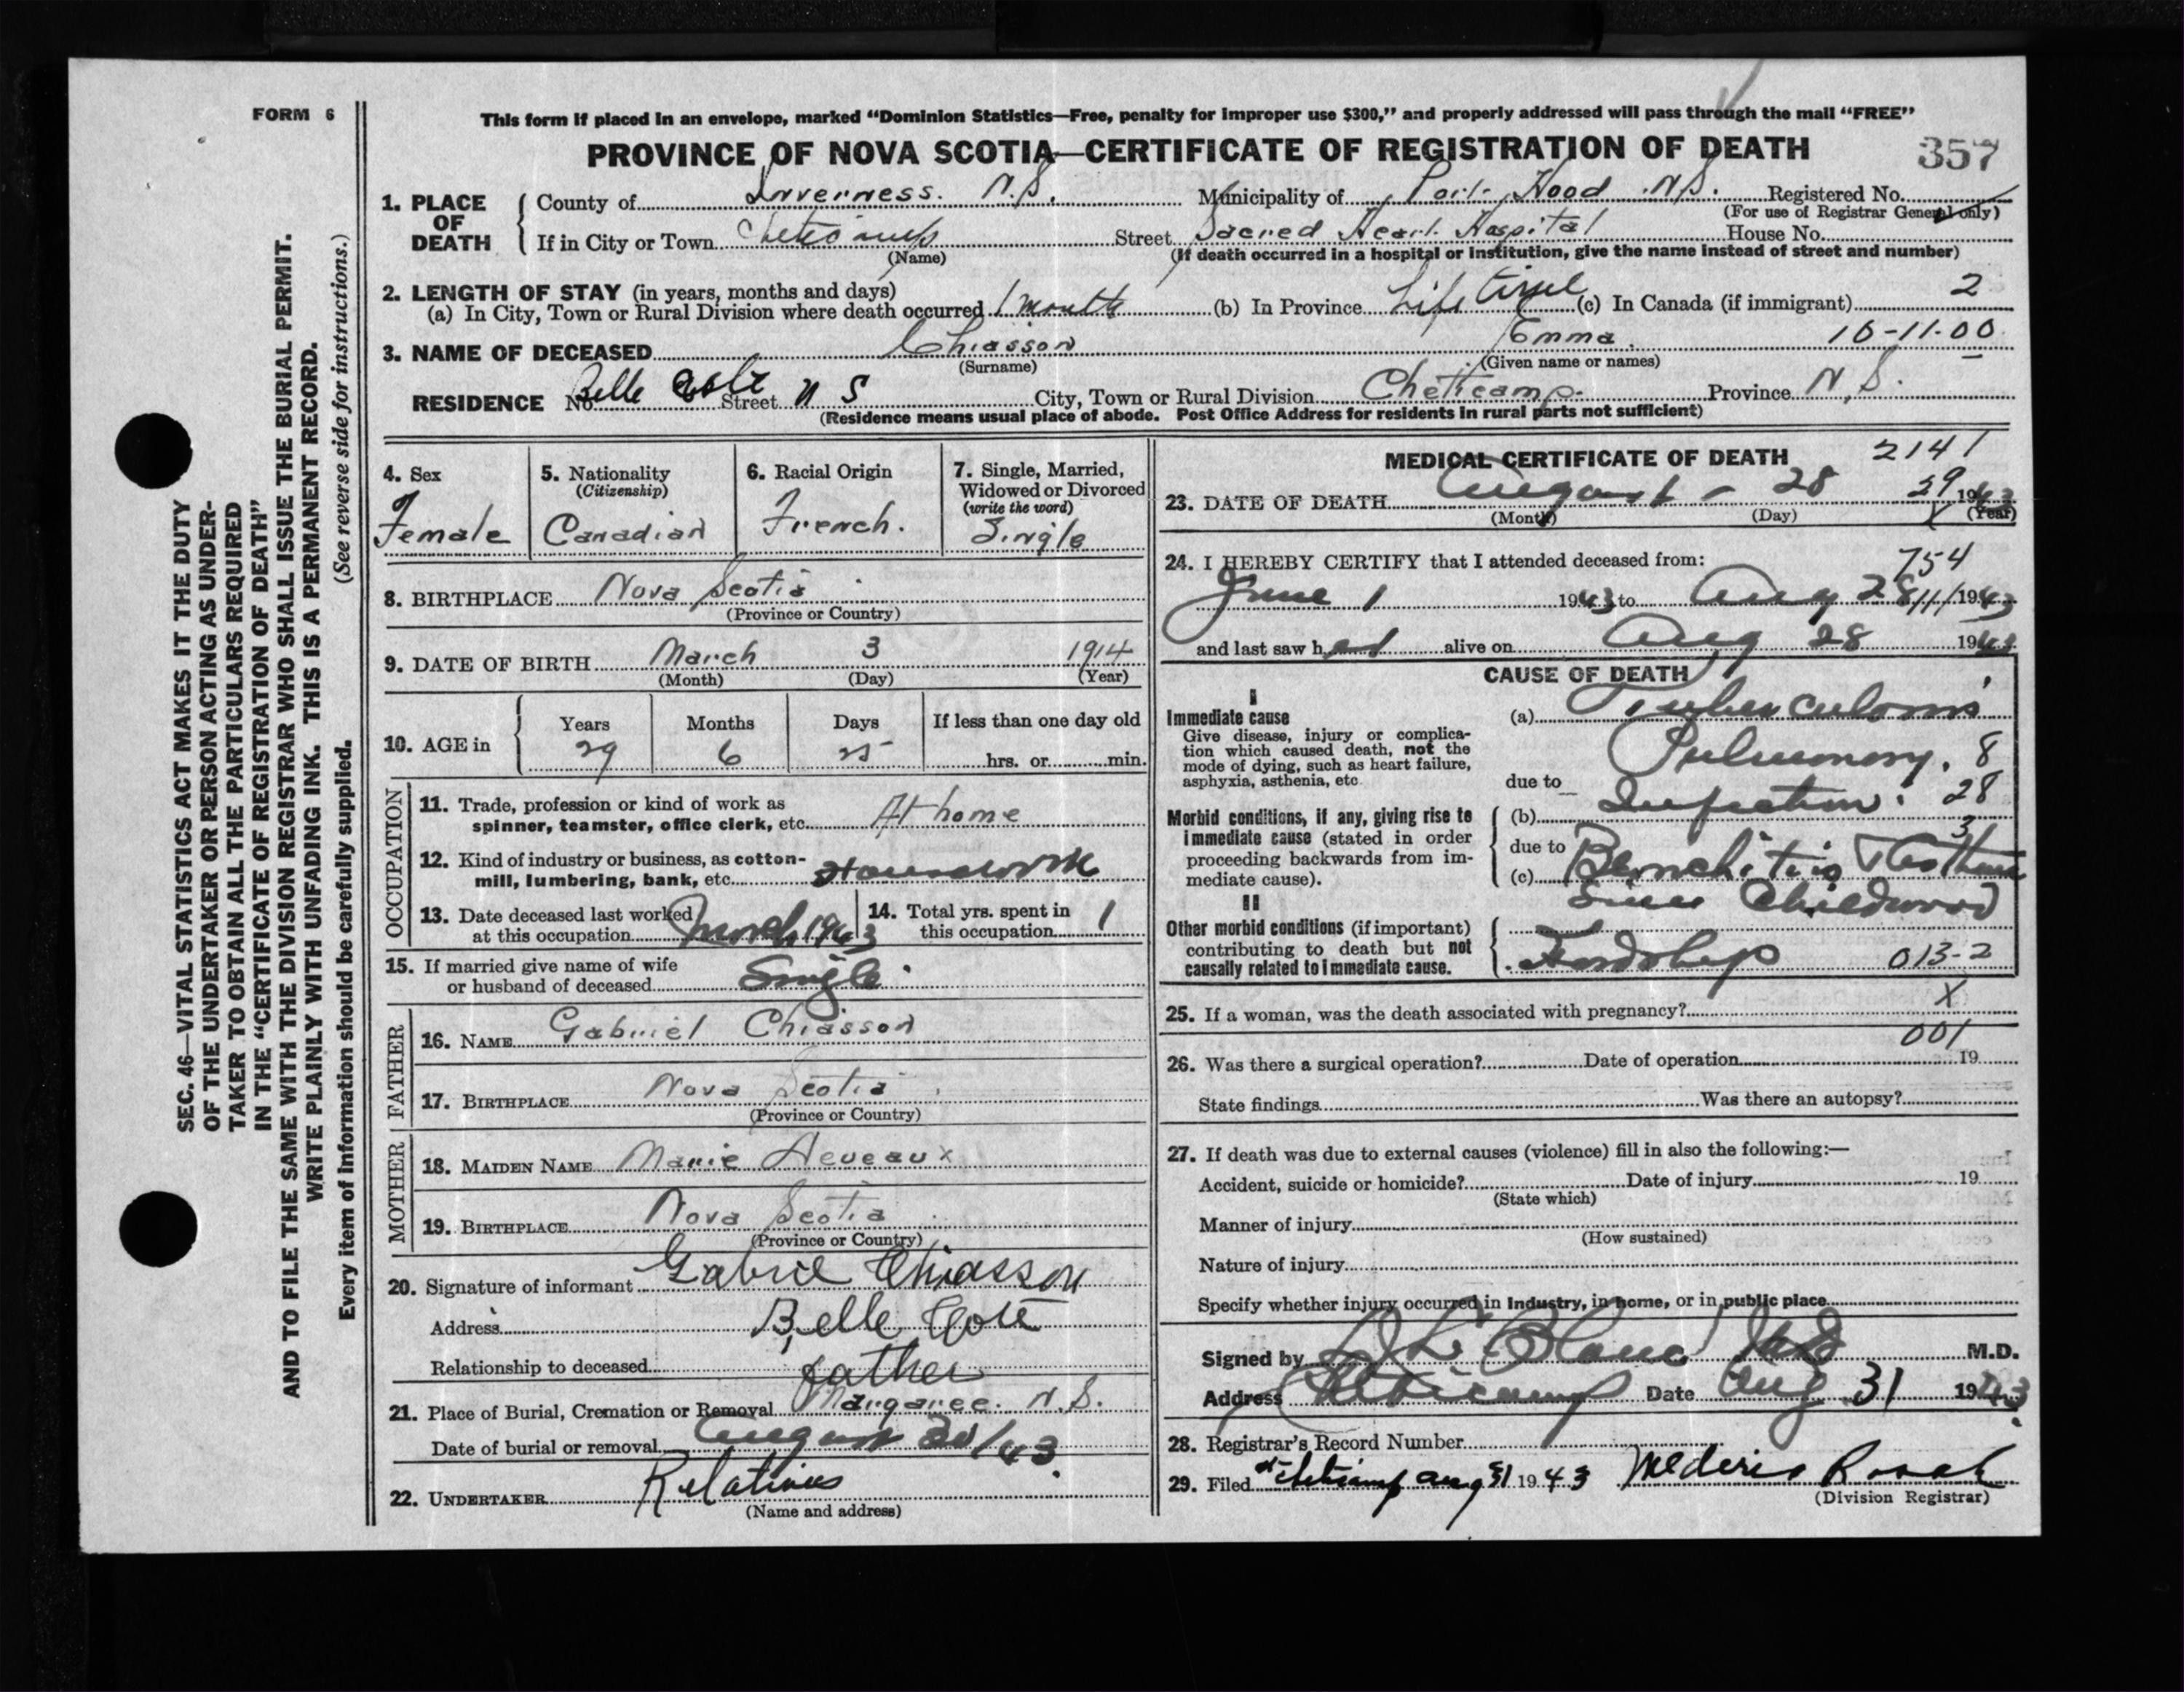 FORM 6
This form if placed in an envelope, marked “Dominion Statistics—Free, penalty for improper use $300,” and properly addressed will pass through the mail “FREE”
PROVINCE OF NOVA SCOTIA—CERTIFICATE OF REGISTRATION OF DEATH 357
1. PLACE OF DEATH
County of Inverness. N.S. Municipality of Port Hood N.S. Registered No.
(For use of Registrar General only)
If in City or Town Cheticamp Street Sacred Heart Hospital House No.
(Name) (If death occurred in a hospital or institution, give the name instead of street and number)
2. LENGTH OF STAY (in years, months and days)
(a) In City, Town or Rural Division where death occurred 1 month (b) In Province Life time (c) In Canada (if immigrant) 2
3. NAME OF DECEASED Chiasson Emma 10-11-00
(Surname) (Given name or names)
RESIDENCE No. Belle Cote Street N S City, Town or Rural Division Cheticamp. Province N.S.
(Residence means usual place of abode. Post Office Address for residents in rural parts not sufficient)
4. Sex
Female
5. Nationality
(Citizenship)
Canadian
6. Racial Origin
French.
7. Single, Married, Widowed or Divorced
(write the word)
Single
8. BIRTHPLACE Nova Scotia
(Province or Country)
9. DATE OF BIRTH March 3 1914
(Month) (Day) (Year)
10. AGE in
Years Months Days If less than one day old
29 6 25 hrs. or min.
OCCUPATION
11. Trade, profession or kind of work as
spinner, teamster, office clerk, etc. At home
12. Kind of industry or business, as cotton-
mill, lumbering, bank, etc. Housework
13. Date deceased last worked
at this occupation March 1943
14. Total yrs. spent in
this occupation 1
15. If married give name of wife
or husband of deceased Single.
FATHER
16. NAME Gabriel Chiasson
17. BIRTHPLACE Nova Scotia
(Province or Country)
MOTHER
18. MAIDEN NAME Marie Deveaux
19. BIRTHPLACE Nova Scotia
(Province or Country)
20. Signature of informant Gabriel Chiasson
Address Belle Cote
Relationship to deceased father
21. Place of Burial, Cremation or Removal Margaree. N.S.
Date of burial or removal August 30/43.
22. UNDERTAKER Relatives
(Name and address)
MEDICAL CERTIFICATE OF DEATH 2141
23. DATE OF DEATH August - 28 29 1943
(Month) (Day) X (Year)
24. I HEREBY CERTIFY that I attended deceased from: 754
June 1 1943 to Aug 28 11/ 1943
and last saw her alive on Aug 28 1943
CAUSE OF DEATH
I
Immediate cause
Give disease, injury or complica-
tion which caused death, not the
mode of dying, such as heart failure,
asphyxia, asthenia, etc.
(a) Tuberculosis
Pulmonary. 8
due to
Morbid conditions, if any, giving rise to
immediate cause (stated in order
proceeding backwards from im-
mediate cause).
(b) Infection. 28
due to 3
(c) Bronchitis & Asthma
Since Childhood
II
Other morbid conditions (if important)
contributing to death but not
causally related to immediate cause.
Hardship 013-2
25. If a woman, was the death associated with pregnancy? X
001
26. Was there a surgical operation? Date of operation 19
State findings Was there an autopsy?
27. If death was due to external causes (violence) fill in also the following:—
Accident, suicide or homicide? Date of injury 19
(State which)
Manner of injury
(How sustained)
Nature of injury
Specify whether injury occurred in industry, in home, or in public place
Signed by L. LeBlanc M.D.
Address Cheticamp Date Aug 31 1943
28. Registrar's Record Number
29. Filed at Cheticamp Aug 31 1943
(Division Registrar)
SEC. 46—VITAL STATISTICS ACT MAKES IT THE DUTY
OF THE UNDERTAKER OR PERSON ACTING AS UNDER-
TAKER TO OBTAIN ALL THE PARTICULARS REQUIRED
IN THE “CERTIFICATE OF REGISTRATION OF DEATH”
AND TO FILE THE SAME WITH THE DIVISION REGISTRAR WHO SHALL ISSUE THE BURIAL PERMIT.
WRITE PLAINLY WITH UNFADING INK. THIS IS A PERMANENT RECORD.
(See reverse side for instructions.)
Every item of information should be carefully supplied.